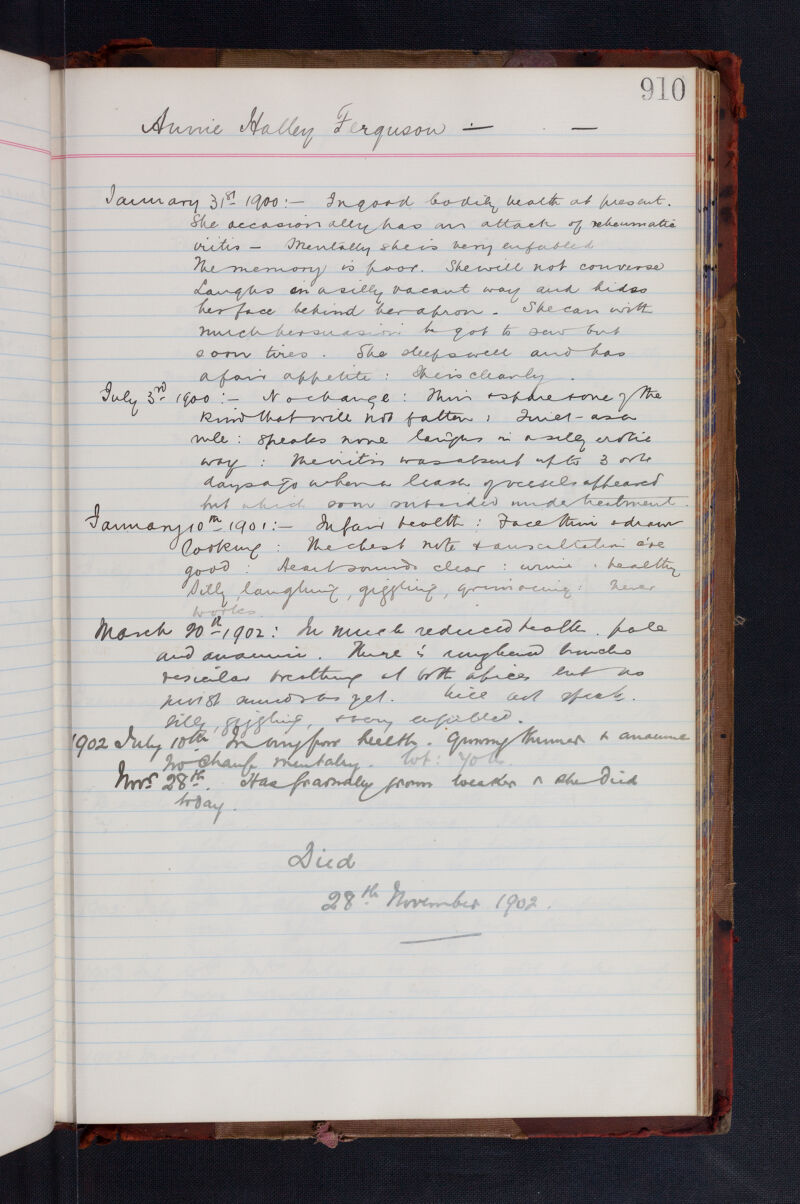 910
Annie Halley Ferguson — —
January 31st 1900:— In good bodily health at present.
She occasionally has an attack of rheumatic
iritis — Mentally she is very enfeebled
The memory is poor. She will not converse
Laughs in a silly vacant way and hides
her face behind her apron. She can with
much persuasion be got to sew but
soon tires. She sleeps well and has
a fair appetite: She is cleanly.
July 3rd 1900:— No change: Thin & spare & one of the
kind that will not fatten; Quiet as a
rule: Speaks none laughs in a silly erotic
way: The iritis was absent up to 3 or 4
days ago when a leash of vessels appeared
but which soon subsided under treatment.
January 10th 1901:— In fair health: Face thin & drawn
looking: The chest note & auscultation are
good: Heart sounds clear: urine: healthy
Silly laughing, giggling, grimacing: Never
works
March 20th 1902: In much reduced health. pale
and anaemic. There is roughened broncho
vesicular breathing at both apices but no
moist sounds as yet. Will not speak.
Silly, giggling, & very enfeebled.
1902 July 10th In very poor health. Growing thinner & anaemic
No change mentally. Wt:
Novr 28th. Has gradually grown weaker & she died
today.
Died
28th November 1902.